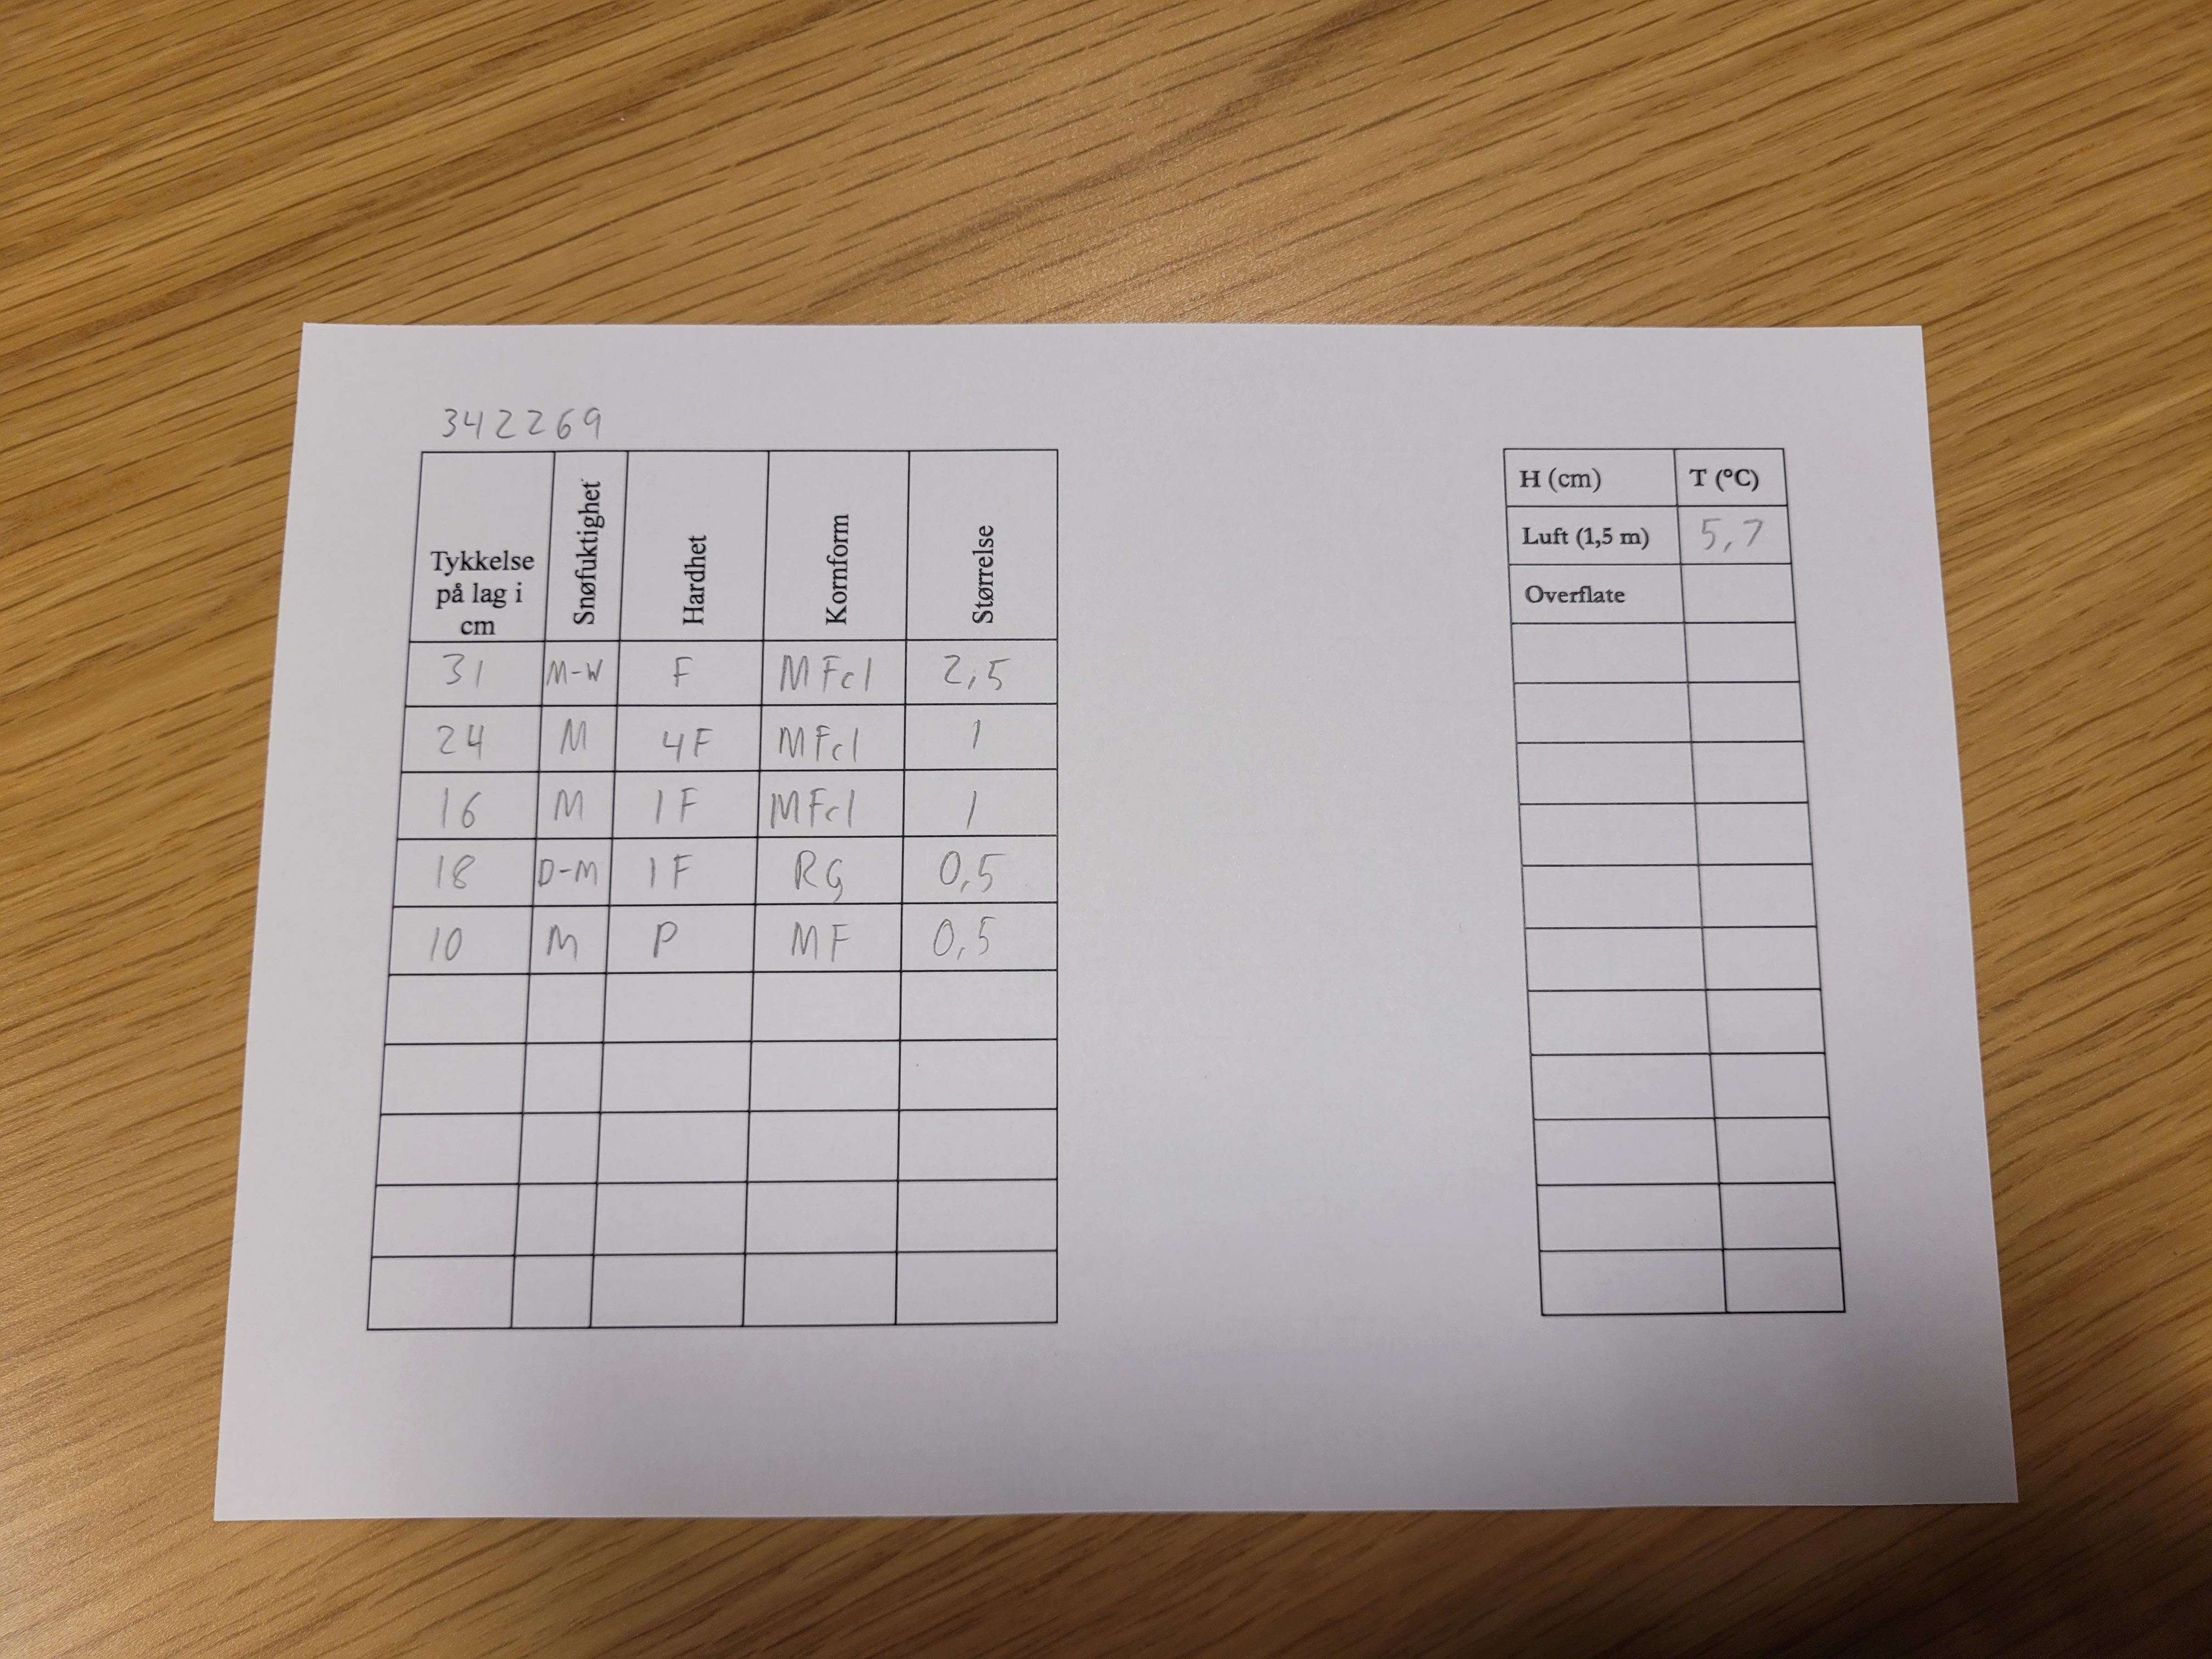 342269
Tykkelse på lag i cm Snøfuktighet Hardhet Kornform Størrelse
31 M-W F MFcl 2,5
24 M 4F MFcl 1
16 M 1F MFcl 1
18 D-M 1F RG 0,5
10 M P MF 0,5
H (cm) T (°C)
Luft (1,5 m) 5,7
Overflate